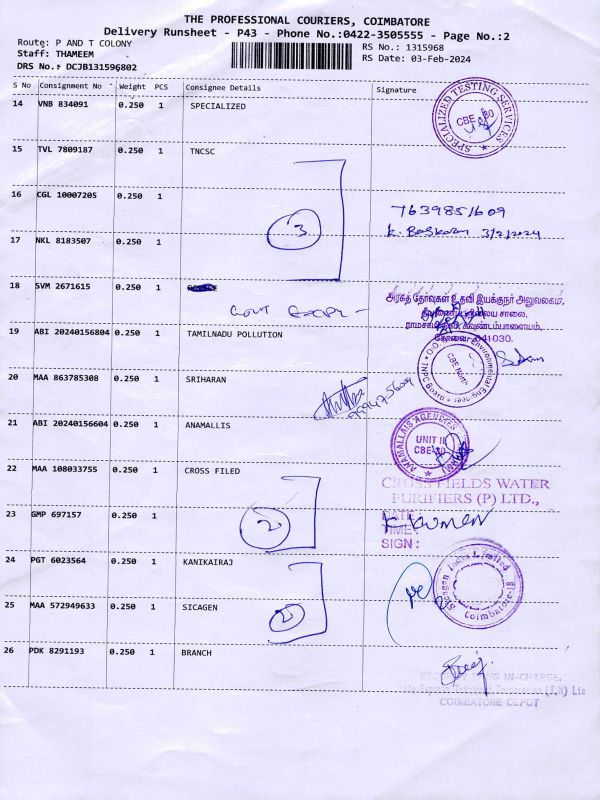 THE PROFESSIONAL COURIERS, COIMBATORE
Delivery Runsheet - P43 - Phone No.:0422-3505555 - Page No.:2
Route: P AND T COLONY
Staff: THAMEEM
DRS No.: DCJB131596802
RS No.: 1315968
RS Date: 03-Feb-2024
S No Consignment No Weight PCS Consignee Details Signature
14 VNB 834091 0.250 1 SPECIALIZED
SPECIALIZED TESTING SERVICES
15 TVL 7809187 0.250 1 TNCSC
16 CGL 10007205 0.250 1
3
7639851609
K. Baskaran 3/2/2024
17 NKL 8183507 0.250 1
18 SVM 2671615 0.250 1
அரசுத் தேர்வுகள் உதவி இயக்குநர் அலுவலகம்,
19 ABI 20240156804 0.250 1 TAMILNADU POLLUTION
Environmental Engineer
CBE North
20 MAA 863785308 0.250 1 SRIHARAN
21 ABI 20240156604 0.250 1 ANAMALLIS
ANAMALLAIS AGENCIES
UNIT II
22 MAA 108033755 0.250 1 CROSS FILED
CROSS FIELDS WATER
PURIFIERS (P) LTD.,
DATE:
TIME:
SIGN:
K. Kumar
23 GMP 697157 0.250 1
2
24 PGT 6023564 0.250 1 KANIKAIRAJ
Sicagen India Limited
Coimbatore-18
25 MAA 572949633 0.250 1 SICAGEN
2
26 PDK 8291193 0.250 1 BRANCH
IN-CHARGE,
(T.N) Ltd
COIMBATORE DEPOT